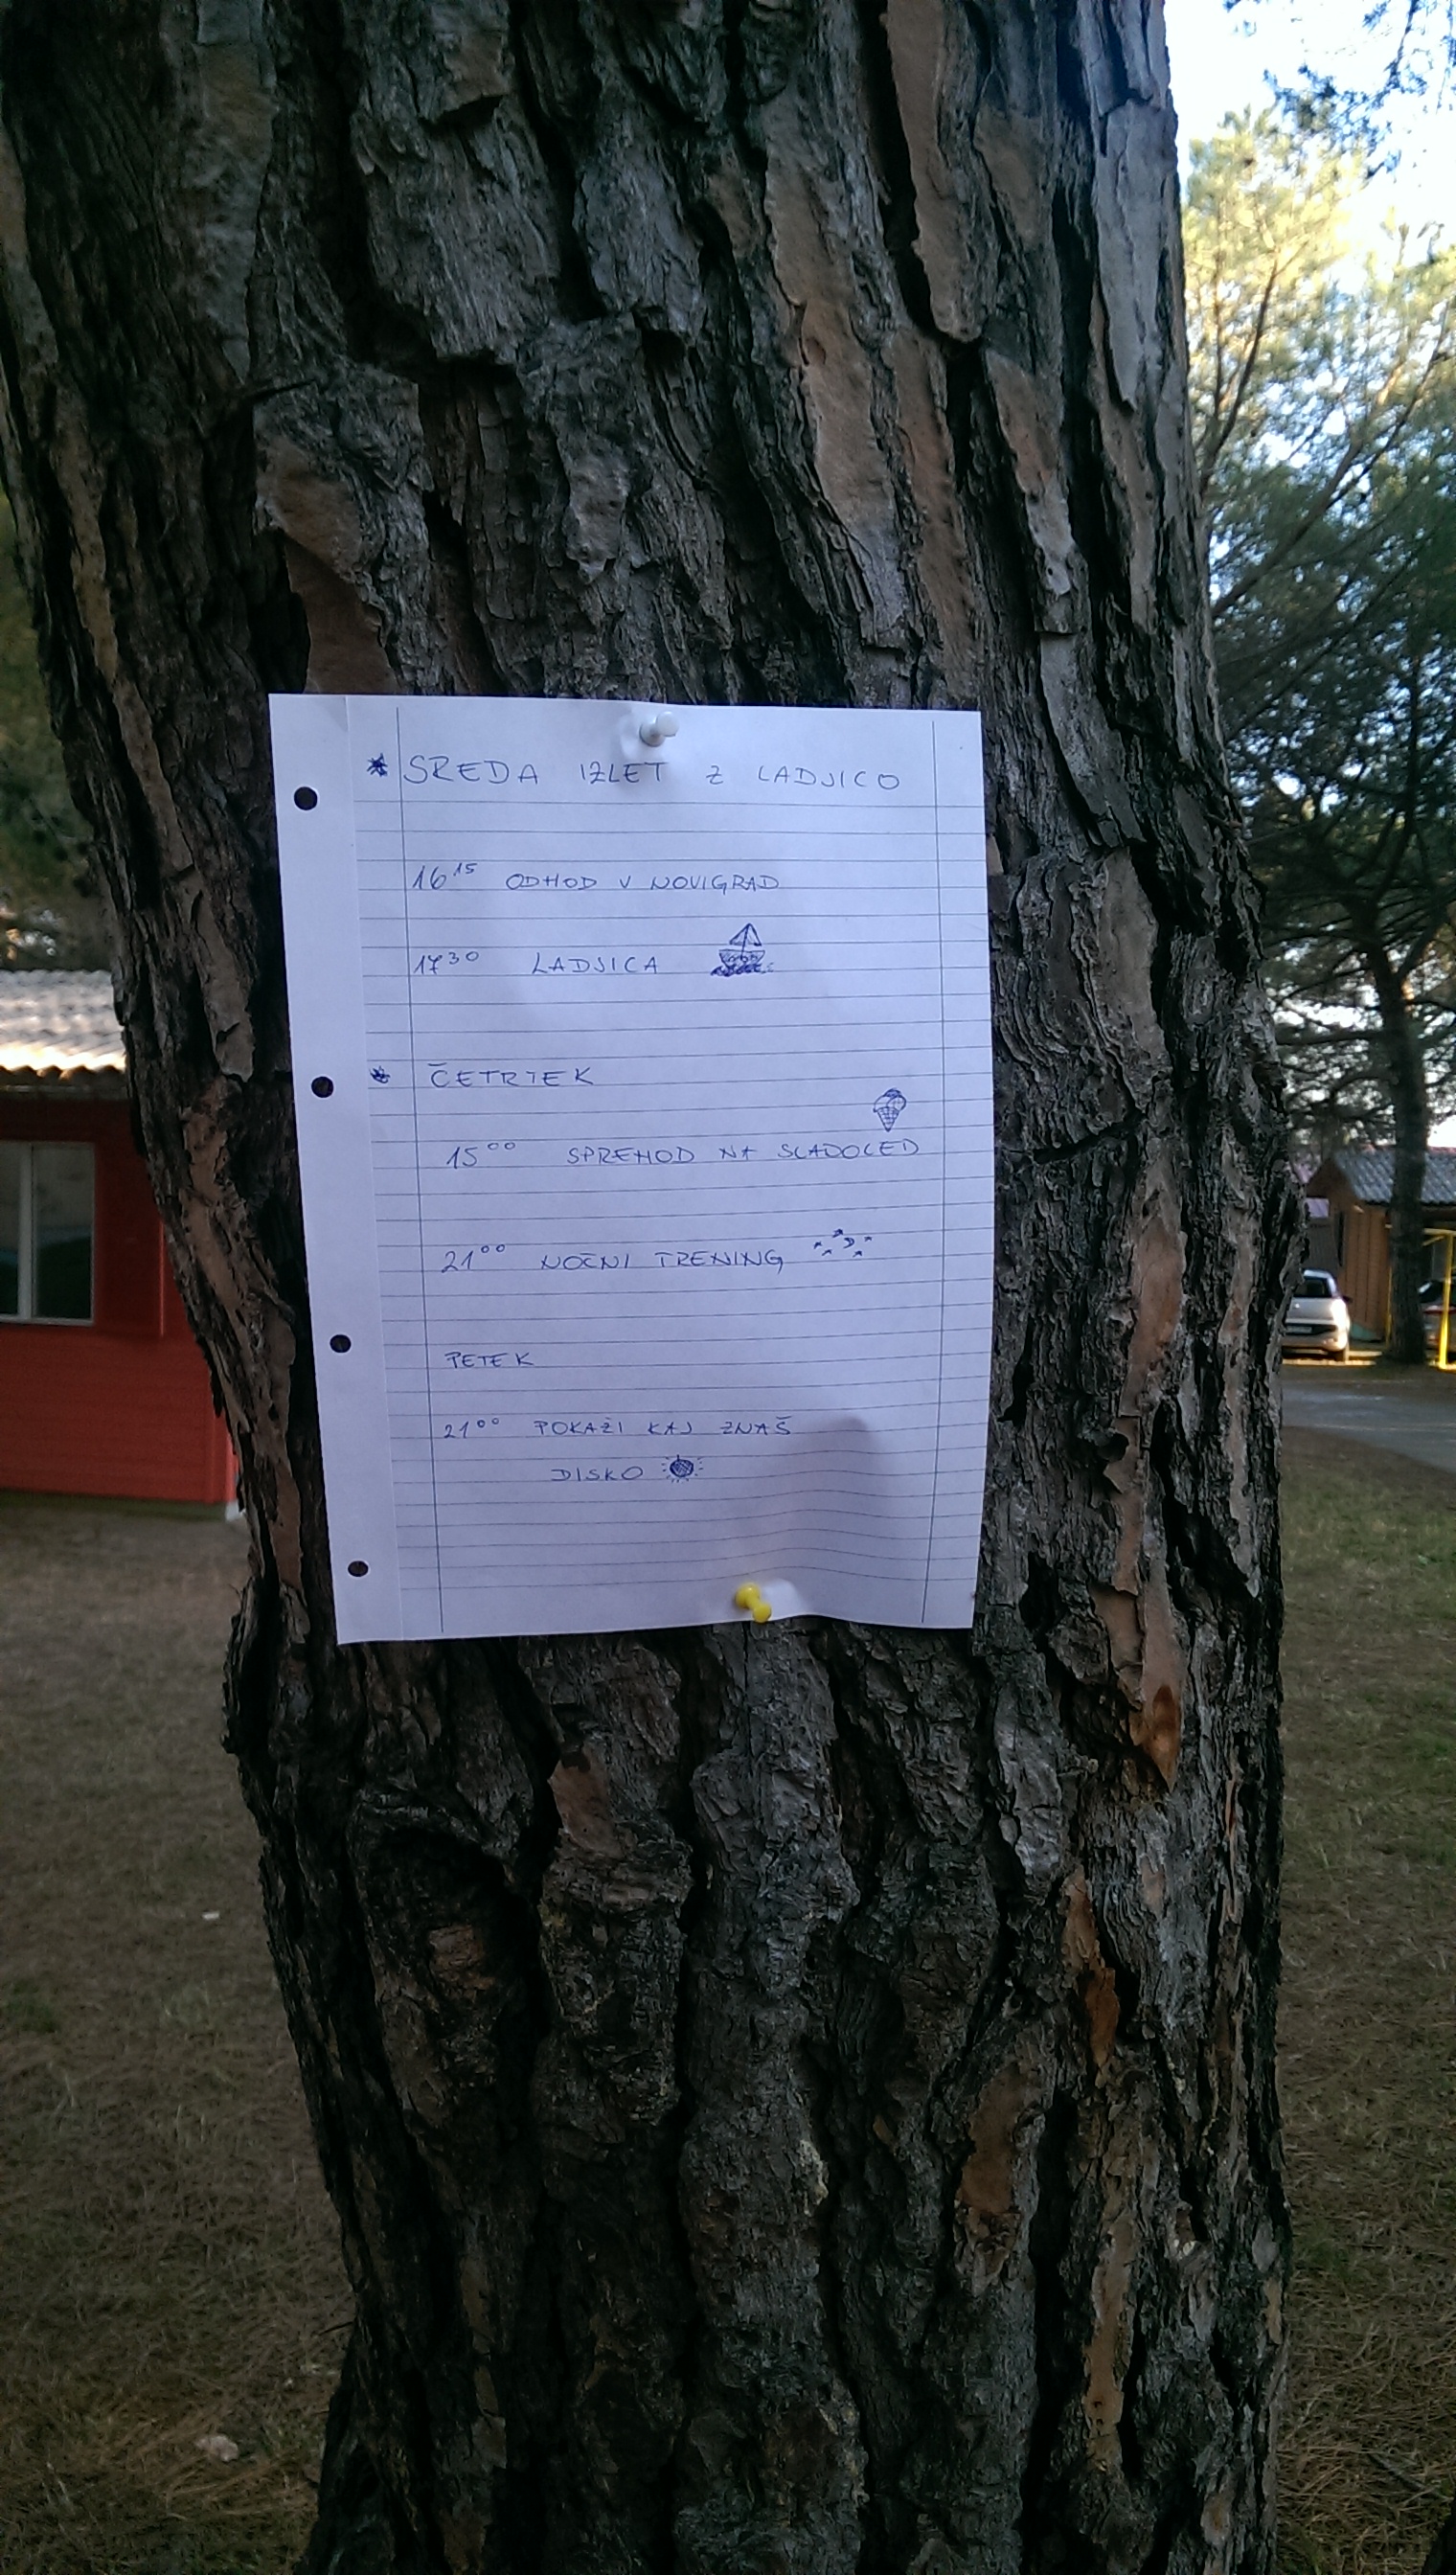 * SREDA IZLET Z LADJICO
16¹⁵ ODHOD V NOVIGRAD
17³⁰ LADJICA
* ČETRTEK
15⁰⁰ SPREHOD NA SLADOLED
21⁰⁰ NOČNI TRENING
PETEK
21⁰⁰ POKAŽI KAJ ZNAŠ
DISKO